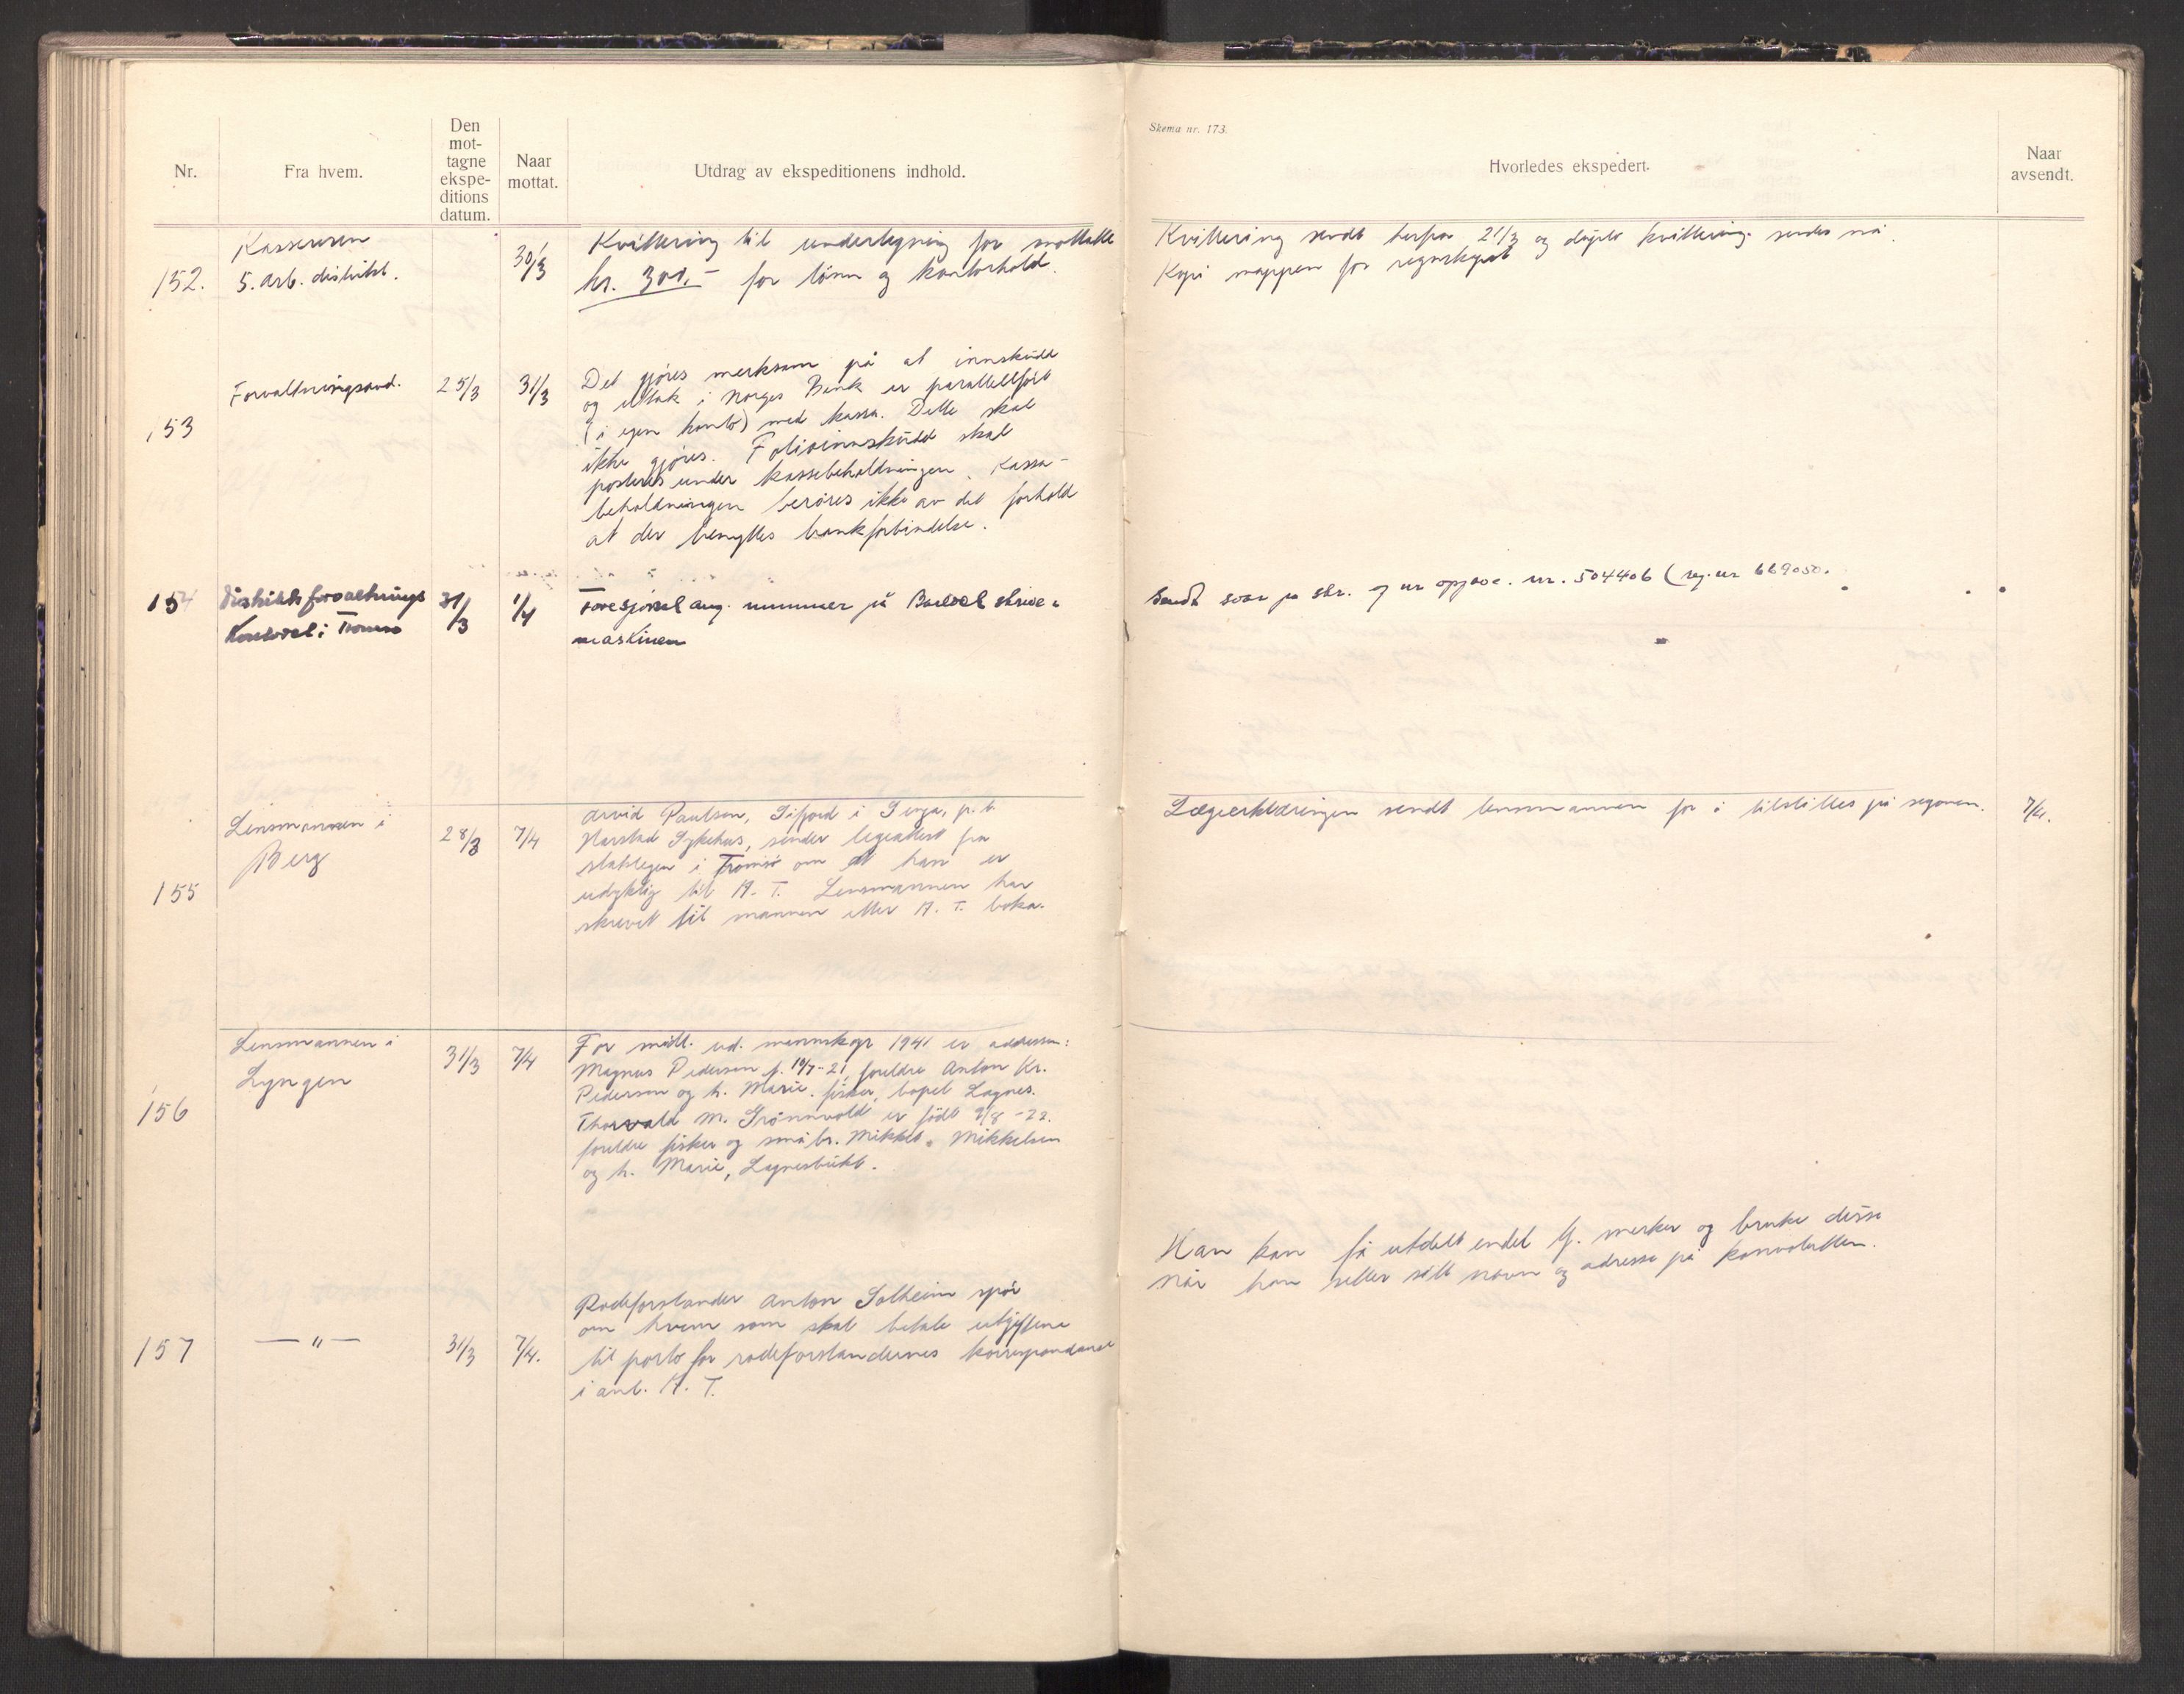 Nr.
Fra hvem.
Den
mot-
tagne
ekspe-
ditions
datum.
Naar
mottat.
Utdrag av ekspeditionens indhold.
Skema nr. 173.
Hvorledes ekspedert.
Naar
avsendt.
152.
Kassereren
5. arb. distrikt.
30/3
Kvittering til undertegning for mottatte
kr. 300.- for lönn og kontorhold.
Kvittering sendt herfra 21/3 og kvittering sendes nå.
Kopi mappen for regnskapet
153
Forvaltningsavd.
25/3
31/3
Det gjöres merksom på at innskudd
og uttak i Norges Bank er parallellfört
(i egen konto) med kassa. Dette skal
ikke gjöres. Folioinnskudd skal
posteres under kassebeholdningen. Kassa-
beholdningen beröres ikke av det forhold
at der benyttes bankforbindelse.
154
Distriktsforvaltnings
Kontoret i Tromsø
31/3
1/4
Forespørsel ang. nummer på skrive-
maskinen
Sendt svar på skr. nr. 504406 (reg. nr 669050.
155
Lensmannen i
Berg
28/3
7/4
Arvid Paulsen, Sifjord i Senja, p.t.
Harstad Sykehus, sender legeattest fra
statslegen i Tromsö om at han er
udyktig til A. T. Lensmannen har
skrevet til mannen etter A. T. boka.
Lægeerklæringen sendt lensmannen for å tilstilles på
7/4.
156
Lensmannen i
Lyngen
31/3
7/4
For midl. ud. mannskap 1941 er adressen:
Magnus Pedersen f. 10/7-21, foreldre Anton Kr.
Pedersen og h. Marie, fisker, bopel Lagnes.
Thorvald M. Grönnvold er född 9/8-22.
foreldre fisker og småbr. Mikkel Mikkelsen
og h. Marie, Lyngesbukt.
157
— " —
31/3
7/4.
Rodeforstander Anton Solheim spör
om hvem som skal betale utgiftene
til porto for rodeforstandernes korrespondanse
i anl. A. T.
Han kan få utdelt endel tj. merker og bruke disse
når han setter sitt navn og adresse på konvolutten.